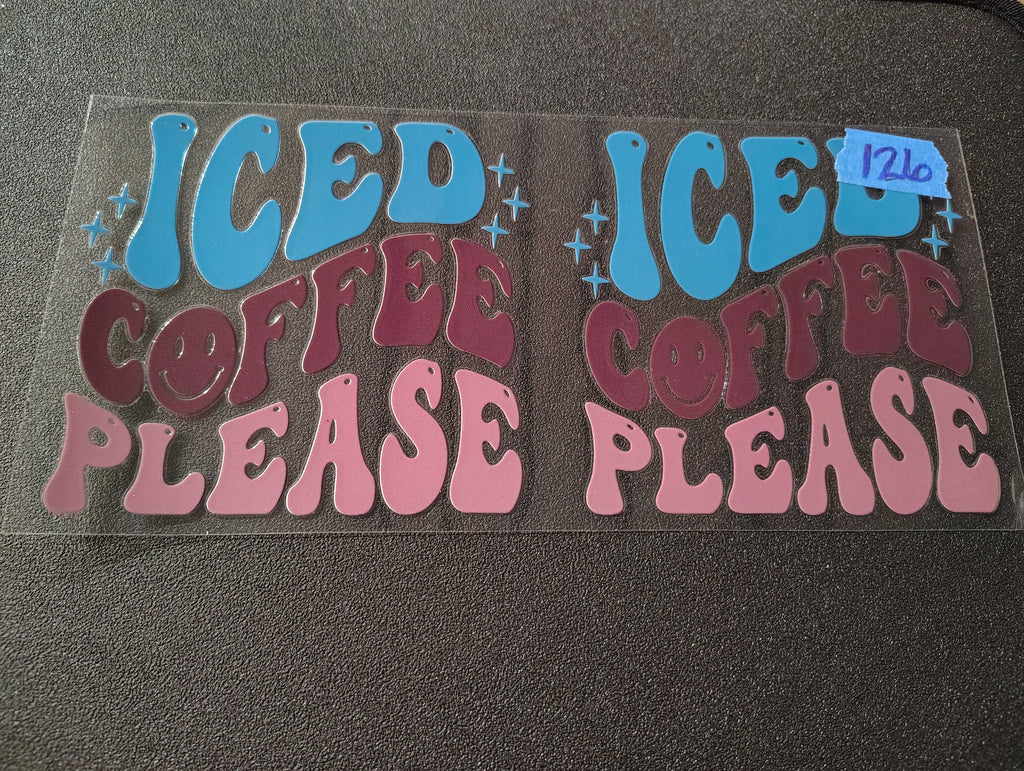 ICED
COFFEE
PLEASE
ICED
126
COFFEE
PLEASE